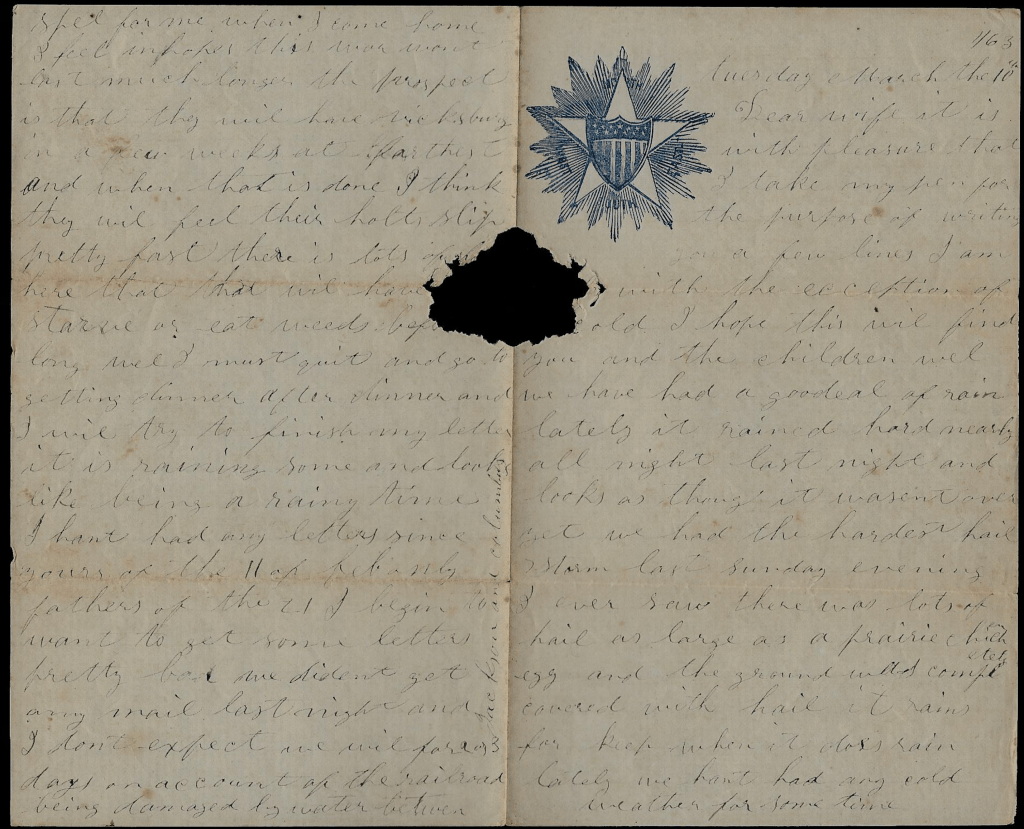 spel for me when I come home
I feel in hopes this war wont
last much longer the prospect
is that they wil have vicksburg
in a few weeks at farthest
and when that is done I think
they wil feel their holts slip
pretty fast there is lots of
here that that wil have
starve or eat weeds
long wel I must quit and go to
getting dinner after dinner and
I wil try to finish my letter
it is raining some and looks
like being a rainy time
I hant had any letters since
yours of the 11 of feb only
fathers of the 21 I begin to
want to get some letters
pretty bad we dident get
any mail last night and
I dont expect we wil for
days on account of the railroad
being damaged by water betwen
Jackson and columbus
/63
tuesday March the 10th
Dear wife it is
with pleasure that
I take my pen for
the purpose of writing
you a few lines I am
with the exception of
old I hope this wil find
you and the children wel
we have had a goodeal of rain
lately it rained hard nearly
all night last night and
looks as though it wasent over
yet we had the hardest hail
storm last sunday evening
I ever saw there was lots of
hail as large as a prairie chick
egg and the ground was completely
covered with hail it rains
for keep when it does rain
lately we hant had any cold
weather for some time